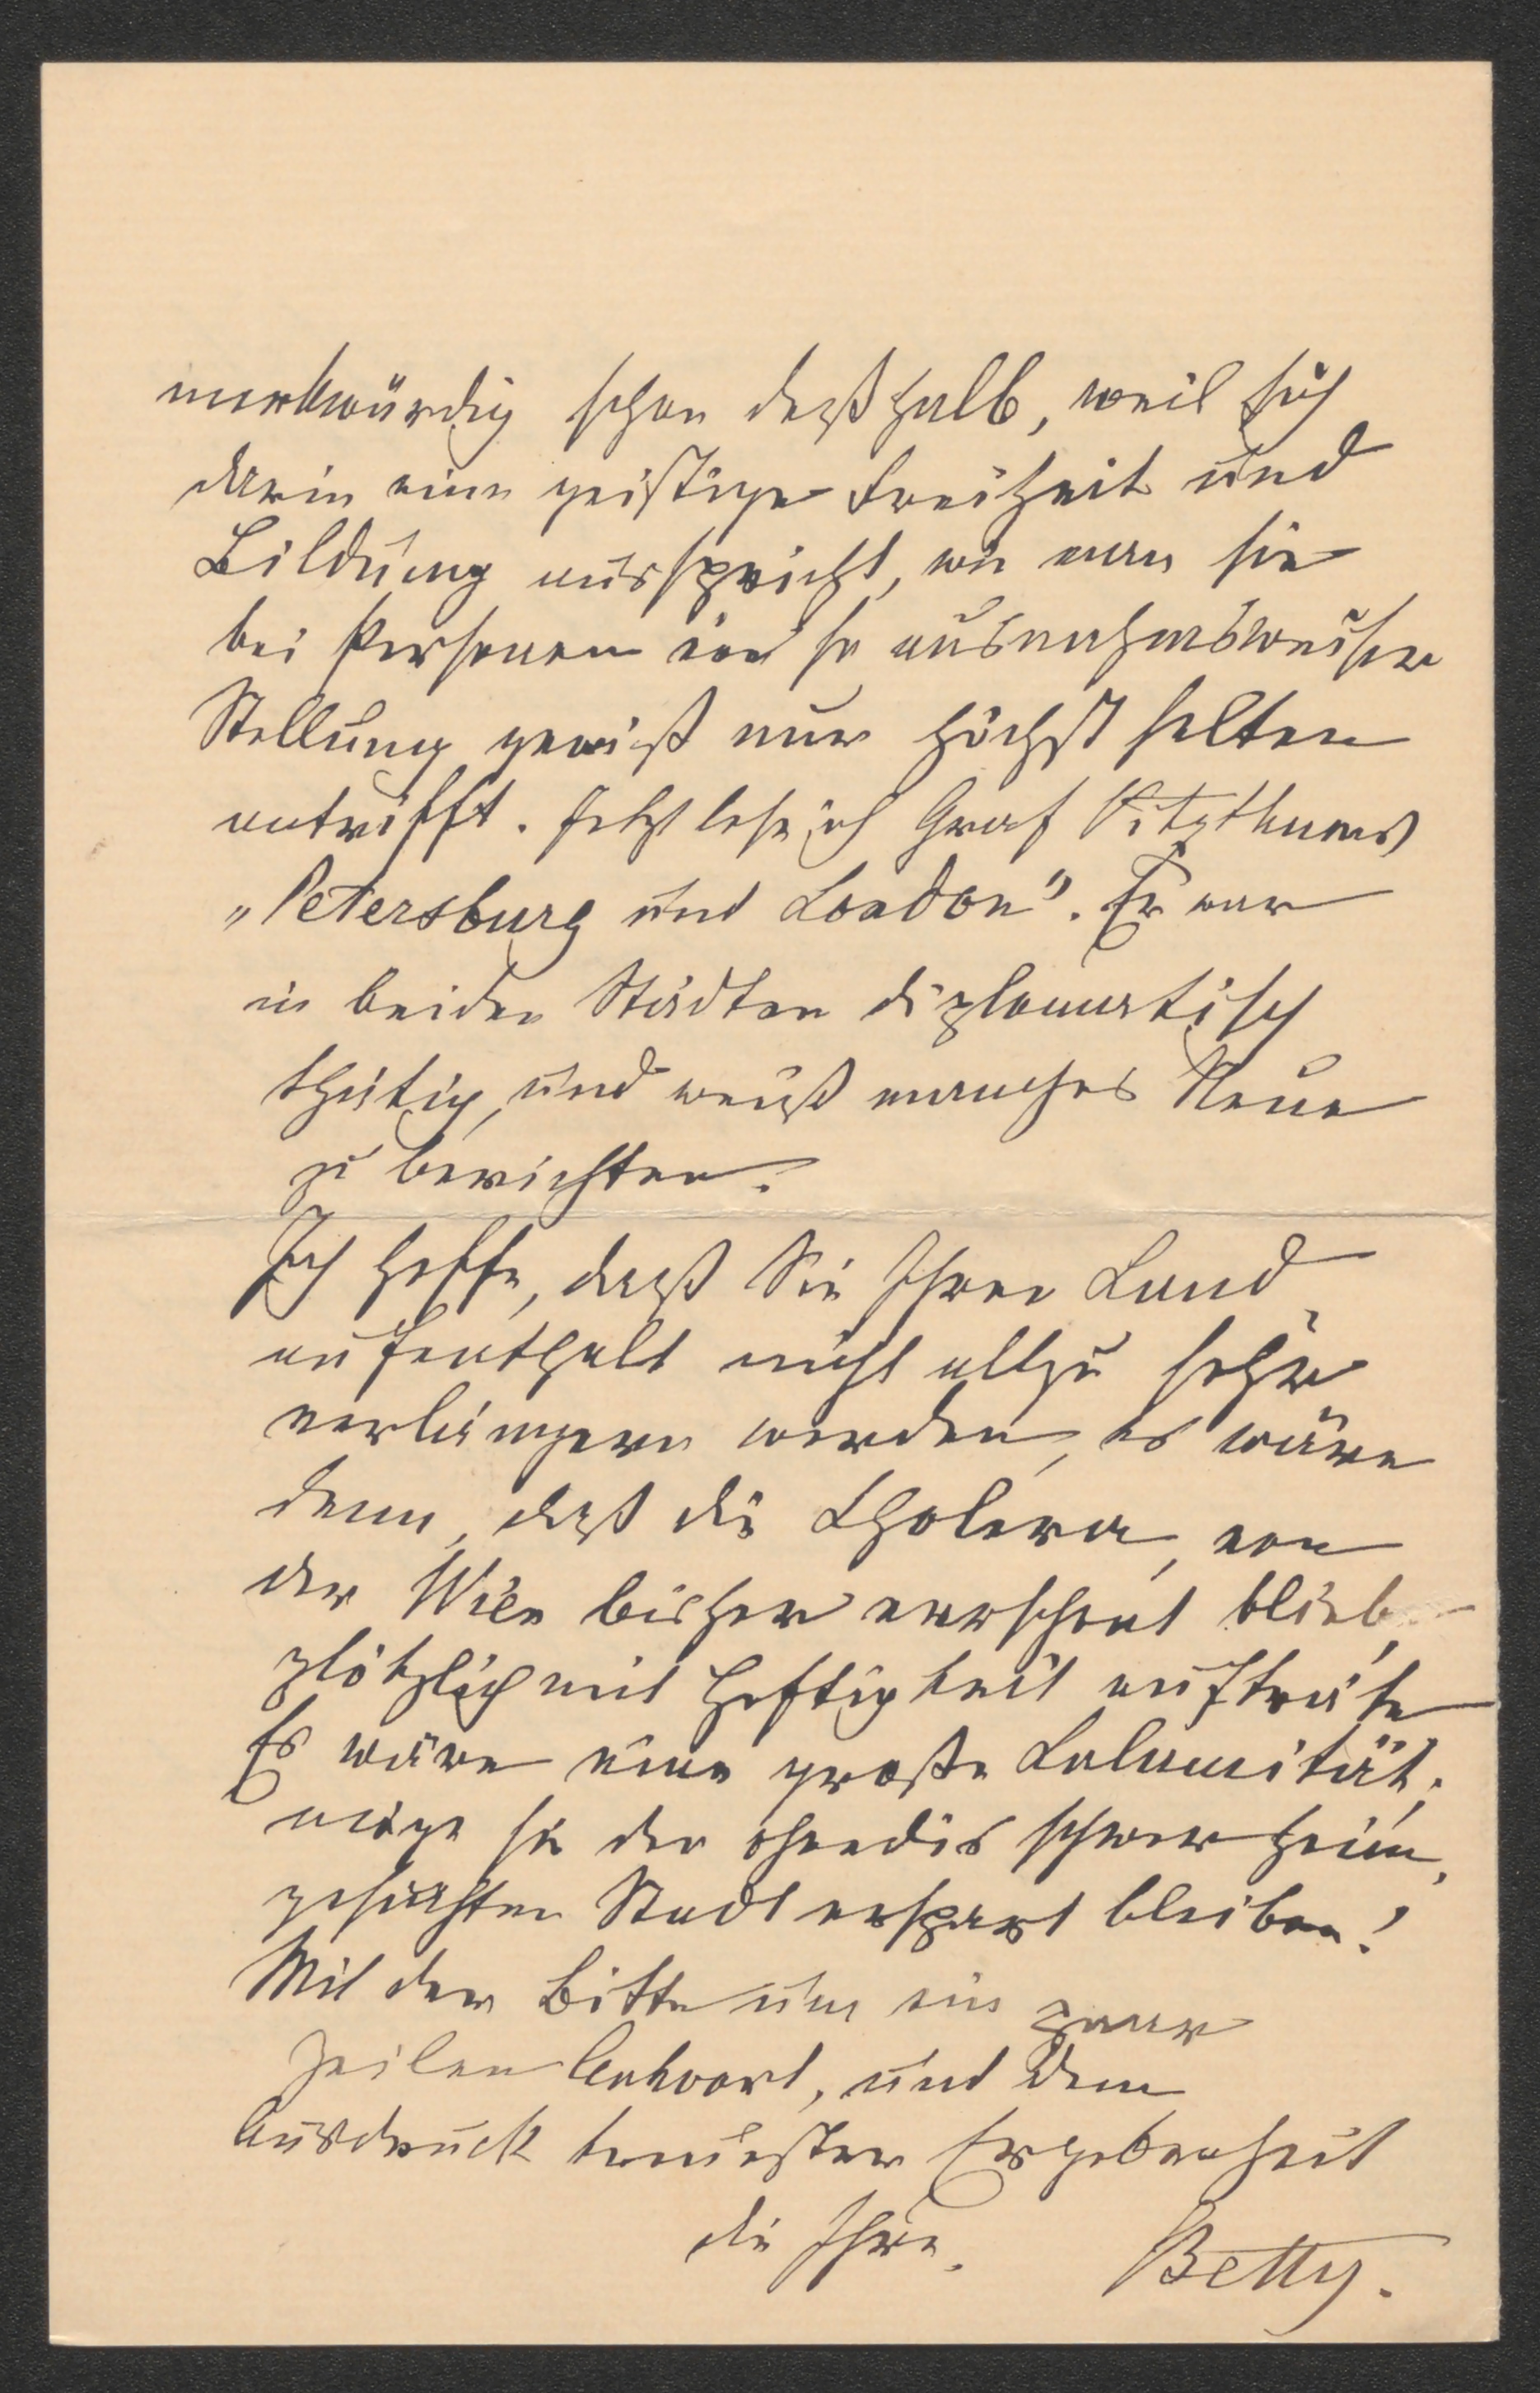 merkwürdig schon deßhalb, weil sich
darin eine geistige Freiheit und
Bildung ausspricht, wie man sie
bei Personen von so ausnahmsweiser
Stellung gewiß nur höchst selten
antrifft. Jetzt lese ich Graf Vitzthums
„Petersburg und London". Er war
in beiden Städten diplomatisch
thätig, und weiß manches Neue
zu berichten.
Ich hoffe, daß Sie Ihren Land
aufenthalt nicht allzu sehr
verlängern werden, es wäre
denn, daß die Cholera, von
der Wien bisher verschont blieb,
plötzlich mit Heftigkeit aufträte
Es wäre eine große Calamität;
möge sie der ohnedis schwer heim,
gesuchten Stadt erspart bleiben!
Mit der Bitte um ein paar
Zeilen Antwort, und dem
Ausdruck treuester Ergebenheit
die Ihre.
Betty.